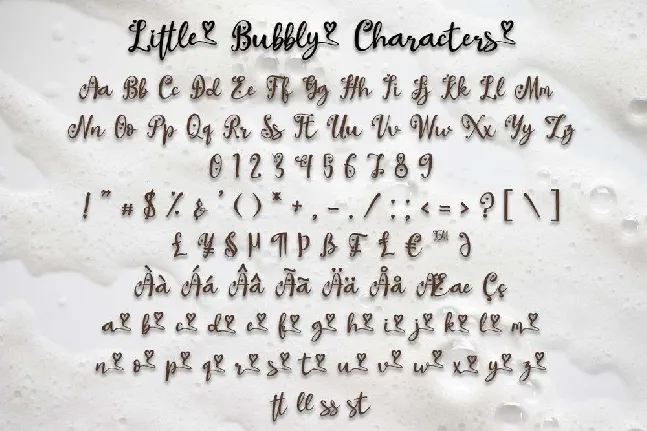 Little Bubbly Characters
Aa Bb Cc Dd Ee Ff Gg Hh Ii Jj Kk Ll Mm
Nn Oo Pp Qq Rr Ss Tt Uu Vv Ww Xx Yy Zz
0 1 2 3 4 5 6 7 8 9
! " # $ % & ' ( ) * + , - . / : ; < = > ? [ \ ]
£ ¥ § µ ¶ þ ß ₣ £ € ™ ∂
Àà Áá Ââ Ãã Ää Åå Ææ Çç
a b c d e f g h i j k l m
n o p q r s t u v w x y z
tt ll ss st